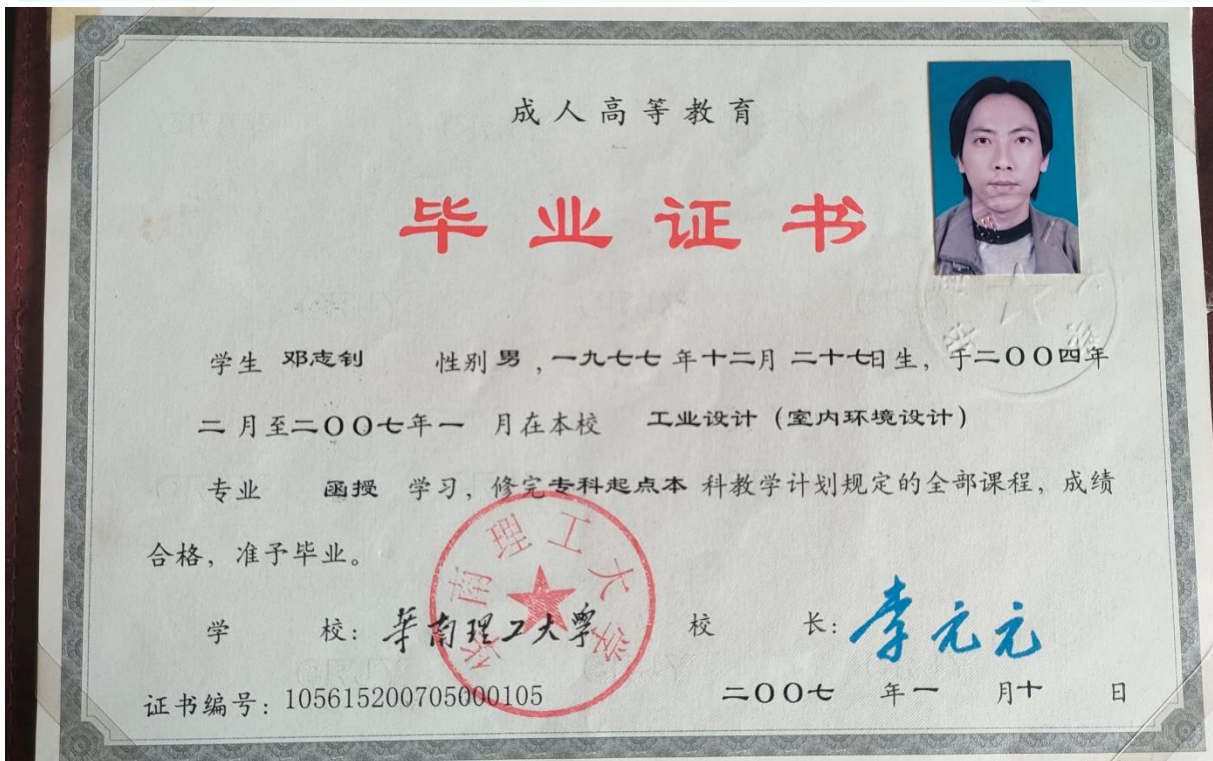 成人高等教育
毕业证书
学生 邓志钊 性别 男 ,一九七七 年十二月 二十七日生, 于二〇〇四年
二 月至二〇〇七年一 月在本校 工业设计 (室内环境设计)
专业 函授 学习, 修完专科起点本 科教学计划规定的全部课程, 成绩
合格, 准予毕业。
华南理工大学
学 校: 華南理工大學 校 长: 李元元
证书编号: 105615200705000105 二〇〇七 年一 月十 日